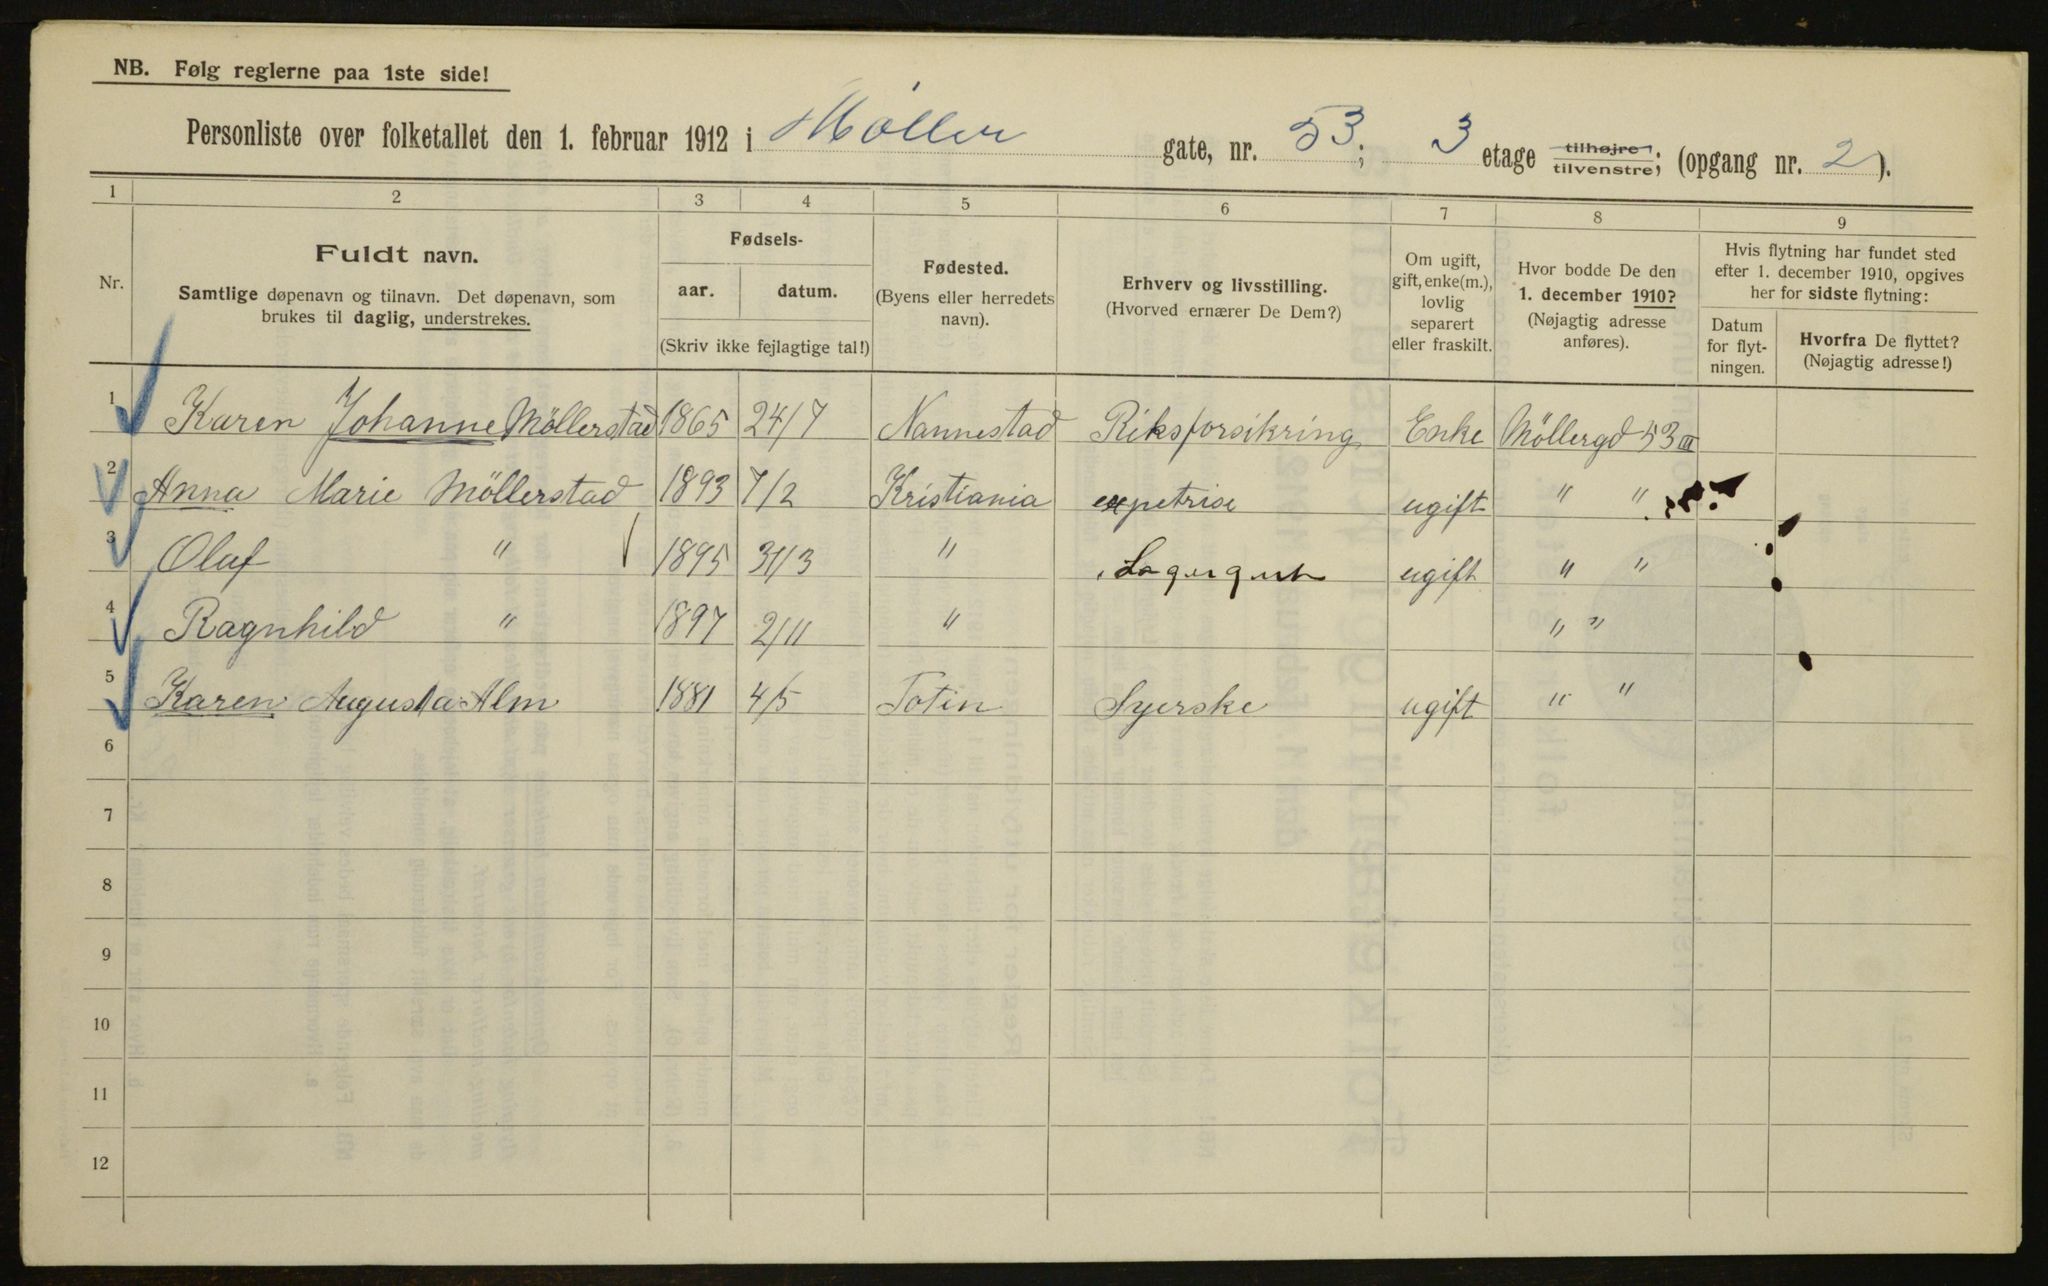 NB. Følg reglerne paa 1ste side!
Personliste over folketallet den 1. februar 1912 i Møller gate, nr. 53; 3 etage tilhøjre tilvenstre; (opgang nr. 2).
1 2 3 4 5 6 7 8 9
Nr.
Fuldt navn.
Samtlige døpenavn og tilnavn. Det døpenavn, som
brukes til daglig, understrekes.
Fødsels-
aar. datum.
(Skriv ikke fejlagtige tal!)
Fødested.
(Byens eller herredets
navn).
Erhverv og livsstilling.
(Hvorved ernærer De Dem?)
Om ugift,
gift, enke(m.),
lovlig
separert
eller fraskilt.
Hvor bodde De den
1. december 1910?
(Nøjagtig adresse
anføres).
Hvis flytning har fundet sted
efter 1. december 1910, opgives
her for sidste flytning:
Datum
for flyt-
ningen.
Hvorfra De flyttet?
(Nøjagtig adresse!)
1 Karen Johanne Möllerstad 1865 24/7 Nannestad Riksforsikring Enke Möllergd 53 III
2 Anna Marie Möllerstad 1893 7/2 Kristiania expetrise ugift " "
3 Oluf " 1895 31/3 " Lagergut ugift " "
4 Ragnhild " 1897 2/11 " " "
5 Karen Augusta Alm 1881 4/5 Totin Syerske ugift " "
6
7
8
9
10
11
12